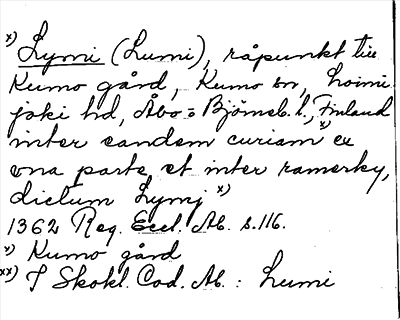 x) Lymi (Lumi), råpunkt till
Kumo gård, Kumo sn, Loimi-
joki hd, Åbo- o Björneb. l., Finland
inter eandem curiam x) ex
una parte et inter ramerky,
dictum Lymj xx)
1362 Reg. Eccl. Ab. s. 116.
x) Kumo gård
xx) I Skokl. Cod. Ab. : Lumi